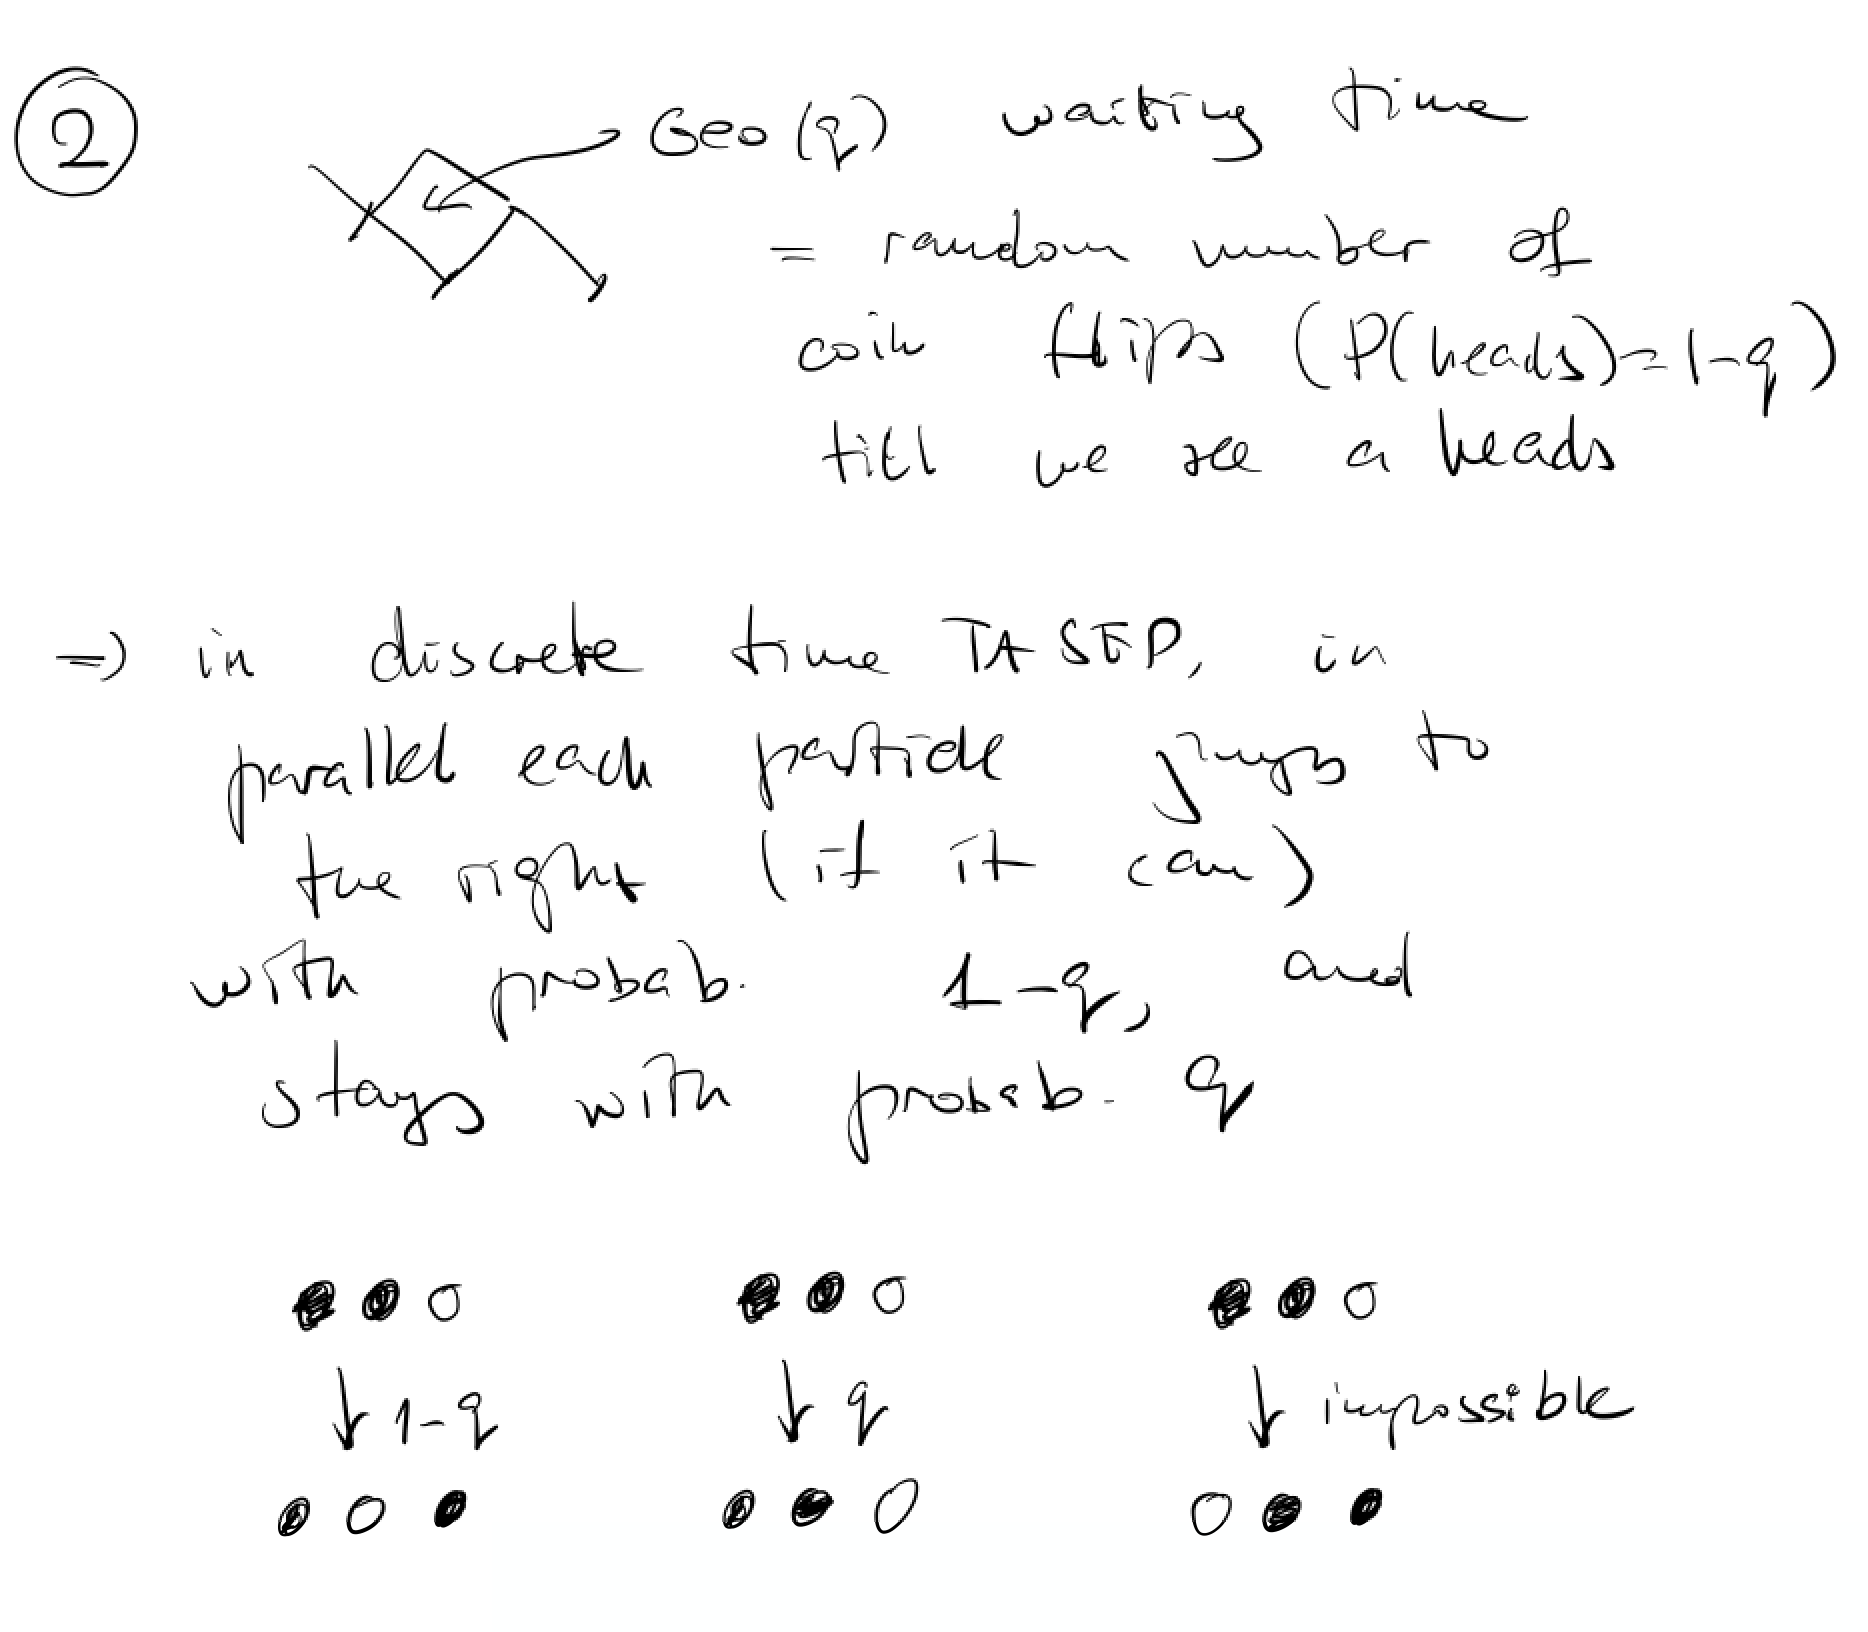 2
Geo(q) waiting time
= random number of
coin flips (P(heads)=1-q)
till we see a heads
=> in discrete time TASEP, in
parallel each particle jumps to
the right (if it can)
with probab. 1-q, and
stays with probab. q
1-q q impossible